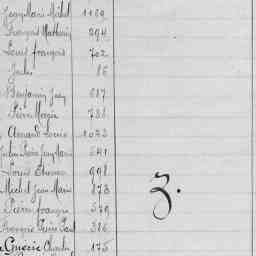 Jean Marie Michel 1189
François Mathurin 294
Louis François 702
Jules 86
Benjamin Jean 617
Pierre Marie 738
Amand Louis 1023
Julien Pierre Jean Marie 541
Louis Etienne 998
Michel Jean Marie 873
Z.
Pierre François 579
François Pierre Paul 386
Guerie Charles 175